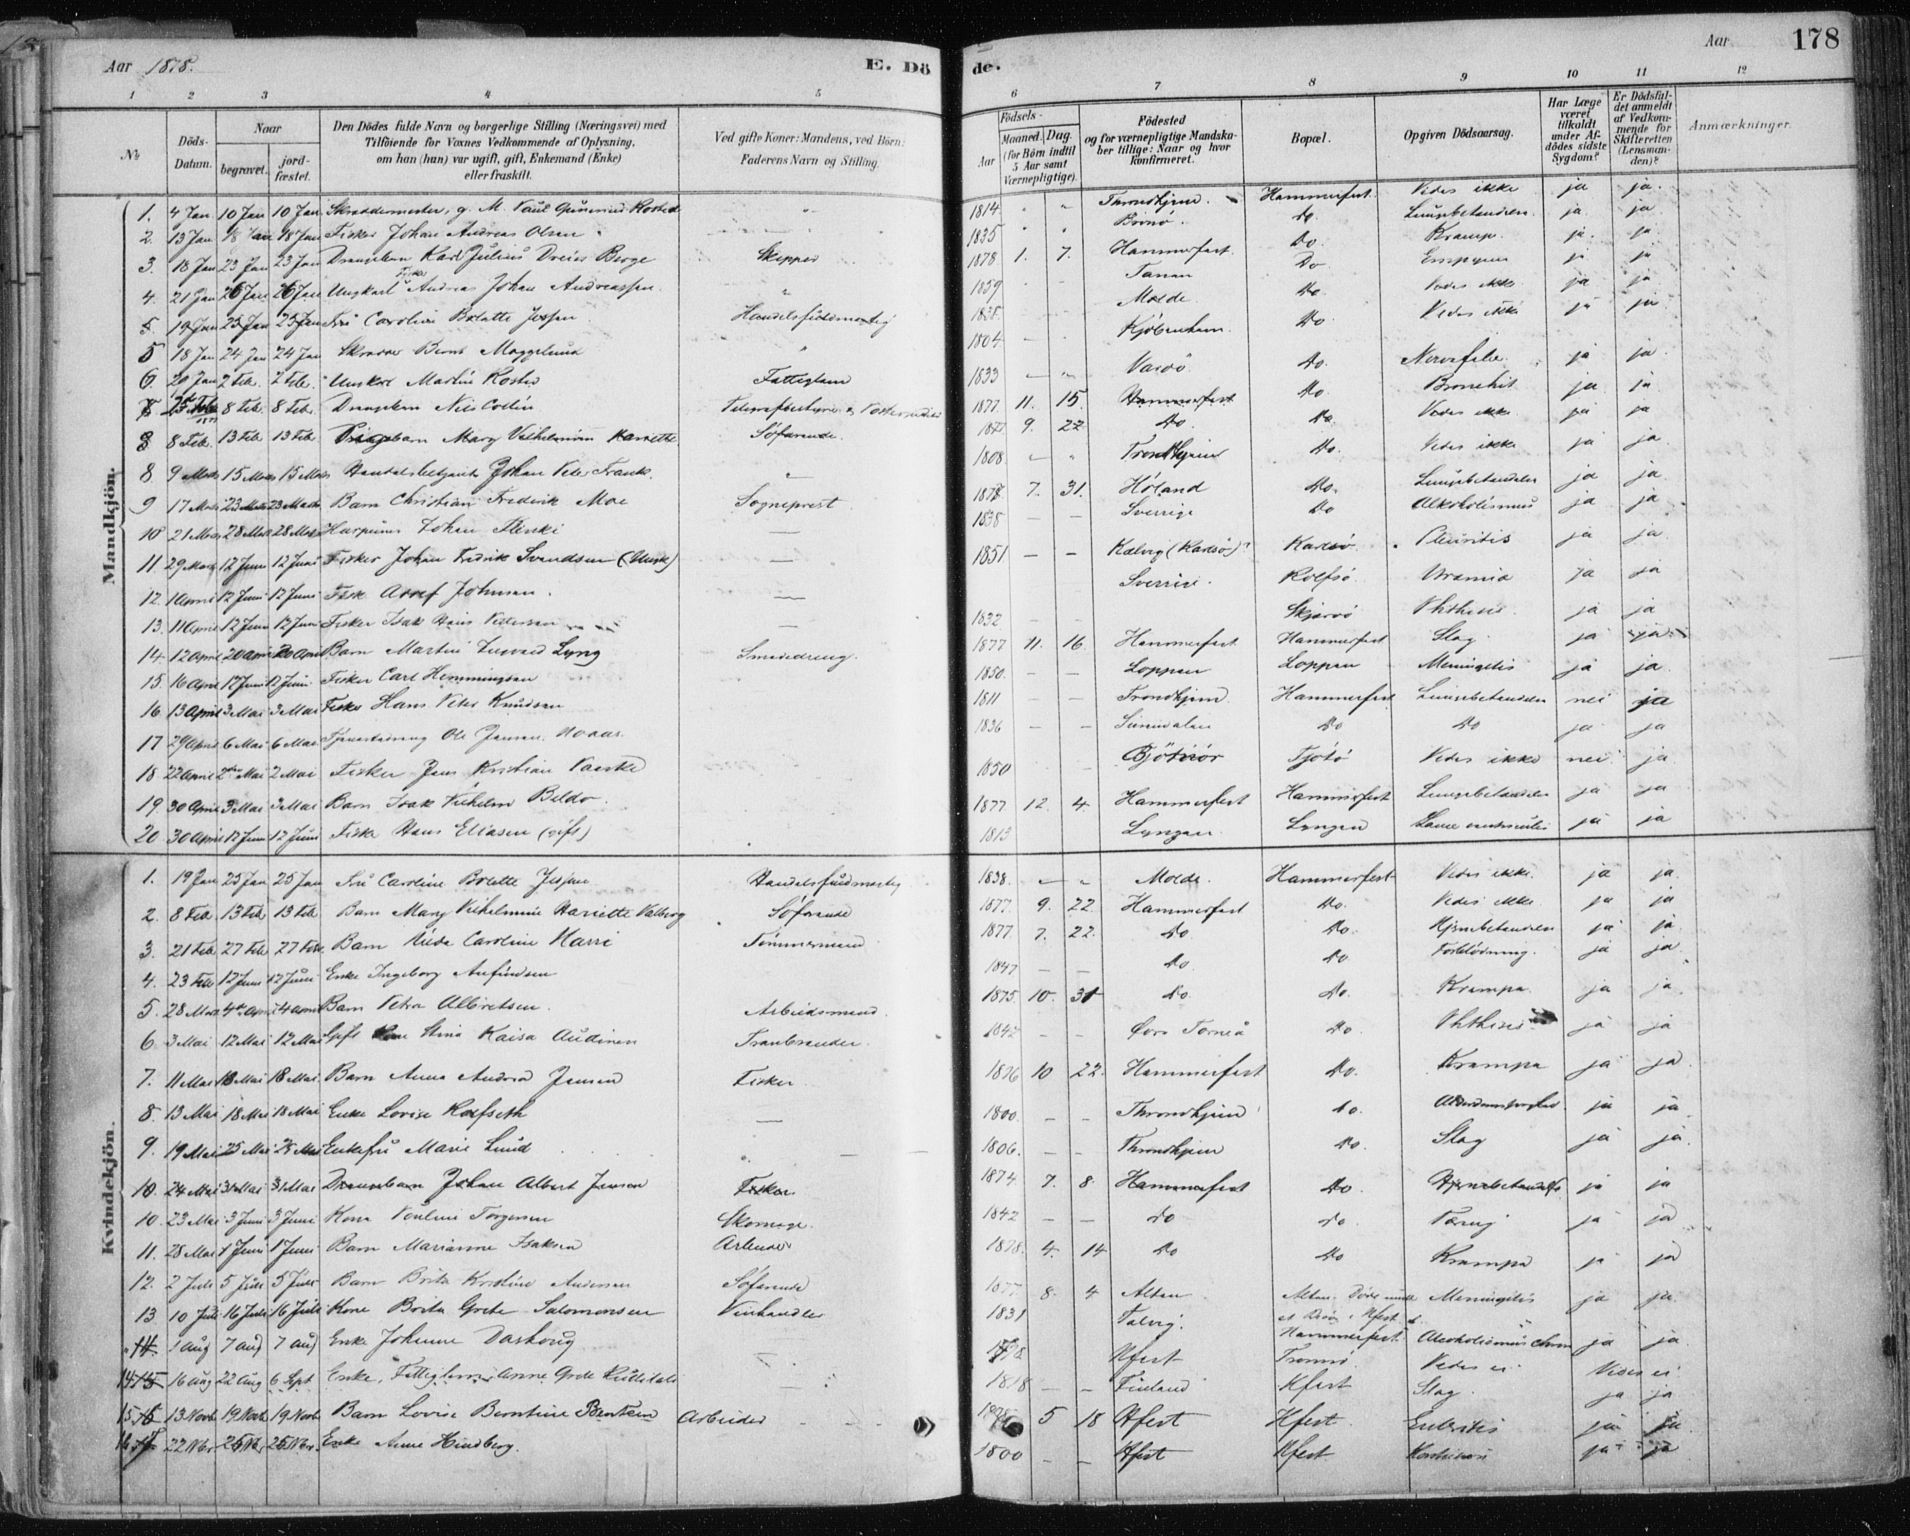 Aar 1878. E. Dö de. Aar 178
1 2 3 4 5 6 7 8 9 10 11 12
№ Döds-Datum. Naar begravet. jordfæstet. Den Dödes fulde Navn og borgerlige Stilling (Næringsvei) med Tilföiende for Voxnes Vedkommende af Oplysning, om han (hun) var ugift, gift, Enkemand (Enke) eller fraskilt. Ved gifte Koner: Mandens, ved Börn: Faderens Navn og Stilling. Födsels- Aar Maaned. Dag. (for Börn indtil 5 Aar samt Værnepligtige). Födested og for værnepligtige Mandskaber tillige: Naar og hvor konfirmeret. Bopæl. Opgiven Dödsaarsag. Har Læge været tilkaldt under Afdödes sidste Sygdom? Er Dödsfaldet anmeldt af Vedkommende for Skifteretten (Lensmanden)? Anmærkninger.
Mandkjön.
1. 4 Jan 10 Jan 10 Jan Skræddermester, g. M. Paul 1814 Throndhjem. Hammerfest. Vides ikke ja ja.
2. 13 Jan 18 Jan 18 Jan Fisker Johan Andreas Olsen 1835 Do. Lungebetændelse ja ja
3. 18 Jan 23 Jan 23 Jan Drengebarn Karl Julius Dreier Berge Skipper 1878 1. 7. Hammerfest Do. Krampe ja. ja
4. 21 Jan 26 Jan 26 Jan Ungkarl Fisker Andrea Johan Andreassen 1859 Tanan Do ja ja
5 19 Jan 25 Jan 25 Jan Fru Caroline Bolette Jessen Handelsfuldmægtig 1838 Molde. Do. Vides ikke ja ja
5 18 Jan 24 Jan 24 Jan Bernt 1804 Kjöbenhavn. Do. Vides ikke ja ja
6. 20 Jan 2 Feb. 2 Feb. Ungkarl Martin Fattiglem 1833 Vardö Do. Nervefeber ja ja.
7 8 Feb. 8 Feb. Drengebarn Nils Collin 1877 11. 15. Hammerfest Do. Bronchit ja ja
8 8 Feb. 13 Feb 13 Feb. Pigebarn Mary Vilhelmine Hariette Söfarende. 1877 9. 22 Do. Do. Vides ikke ja ja
8 9 Mads 15 Mads 15 Mads Handelsbetjent Johan Peter Frank. 1808 Trondhjem Do. Vides ikke ja ja.
9 17 Mads 23 Mads 23 Mads Barn Christian Fredrik Moe Sogneprest 1877 7. 31. Höland Do. Lungebetændelse ja ja.
10 21 Mads 28 Mads 28 Mads Johan 1838 — — Sverrige Do Alkoholismus ja ja
11 29 Mads 12 Juni 12 Juni Fisker Johan Fredrik Svendsen (Ungk) — 1851 — — (Karlsö) Karlsö. Pleuritis ja ja.
12. 1 April 12 Juni 12 Juni Fisk Johnsen. — Sverrige. Rolfsö. Uræmia ja ja
13. 11 April 12 Juni 12 Juni Fisker Isak Hans Pedersen — 1832 — — Skjervö Phthisis. ja ja
14. 12 April 20 April 20 April Barn Martin Ingvard Lyng Smededreng. 1877 11. 16 Hammerfest Hammerfest Slag. ja ja
15. 16 April 12 Juni 12 Juni Fisker Carl Hemmingsen 1850. — — Loppen Loppen Meningitis ja ja.
16 13 April 3 Mai 3 Mai Fisker Hans Peter Knudsen 1811 — — Trondhjem Hammerfest Lungebetændelse nei ja
17 29 April 6 Mai 6 Mai Ole Jensen 1836 — — Do Do ja ja
18 22 April 2 Mai 2 Mai Fisker Jens Kristian 1850 Tjötö Vides ikke nei ja
19. 30 April 3 Mai 3 Mai Barn Isak Vilhelm Beldo. 1877 12. 4. Hammerfest Hammerfest Lungebetændelse ja ja
20 30 April 12 Juni 12 Juni Fisker Hans Eliasen (gift) 1813 Lyngen. Lyngen ja ja
Kvindekjön.
1. 19 Jan 25 Jan 25 Jan Fru Caroline Bolette Jessen Handelsfuldmægtig 1838. Molde. Hammerfest Vides ikke. ja ja.
2. 8 Feb. 13 Feb 13 Feb. Barn Mary Vilhelmine Hariette Valberg Söfarende 1877. 9. 22 Hammerfest Do. Vides ikke. ja ja
3. 21 Feb. 27 Feb 27 Feb. Barn Caroline Harri Tömmermand 1877 7. 22. Do Do. Hjernebetændelse ja ja
4. 23 Feb 12 Juni 12 Juni Enke Ingeborg Anfindsen 1847 — — Do Do Forblödning. ja ja.
5. 28 Mads 4 April 4 April Barn Petra Albretsen. Arbeidsmand. 1875. 10. 31 Do. Do. Krampe. ja ja.
6. 3 Mai 12 Mai 12 Mai Gift Kone Stina Kaisa Audinen Tranbrænder. 1842 — — Övre Torneå Do. Phthisis ja ja
7. 11 Mai 18 Mai 18 Mai Barn Anna Andrea Jensen Fisker 1876 10 22. Hammerfest Do. Krampe ja ja
8. 13 Mai 18 Mai 18 Mai Enke Lovise Rolfseth — 1800. — — Throndhjem Do. ja ja.
9. 19 Mai 25 Mai 25 Mai Enkefru Marie Lund 1806. — — Throndhjem Do. Slag ja ja.
10. 24 Mai 31 Mai 31 Mai Drengebarn Johan Albert Jensen Fisker 1874 7. 8. Hammerfest Do. Hjernebetændelse ja ja
10. 23 Mai 3 Juni 3 Juni Kone Pauline Torgersen Skomager. 1842 — — Do Do. Tæring ja ja
11. 28 Mai 1 Juni 1 Juni Barn Marianne Isaksen Arbeider 1878. 4. 14 Do Do Krampe ja ja
12. 2 Juli 5 Juli 5 Juli Barn Brita Kristine Andersen Söfarende 1877 8. 4 Alten Alten. Meningitis ja ja.
13. 10 Juli 16 Juli 16 Juli Kone Brita Grete Salomonsen Vinhandler 1831 Talvig. Hammerfest. Alcoholismus chron ja ja.
14. 1 Aug 7 Aug 7 Aug Enke Johanne Hfest Tromsö. Vides ei. Vides ei
14 15 16 Aug 22 Aug 6 Sept Enke, Fattiglem Anne Grete 1818 — — Finland Hfest Slag. ja ja
15 16 13 Novb 19 Novb. 19 Novb. Barn Lovise Berntine Berntsen Arbeider 5 18 Hfest Hfest. Enteritis ja ja
16 17 22 Nbr. 25 Nbr. 25 Nbr. Enke Anne Hindberg. 1800 — — Hfest Hfest ja ja